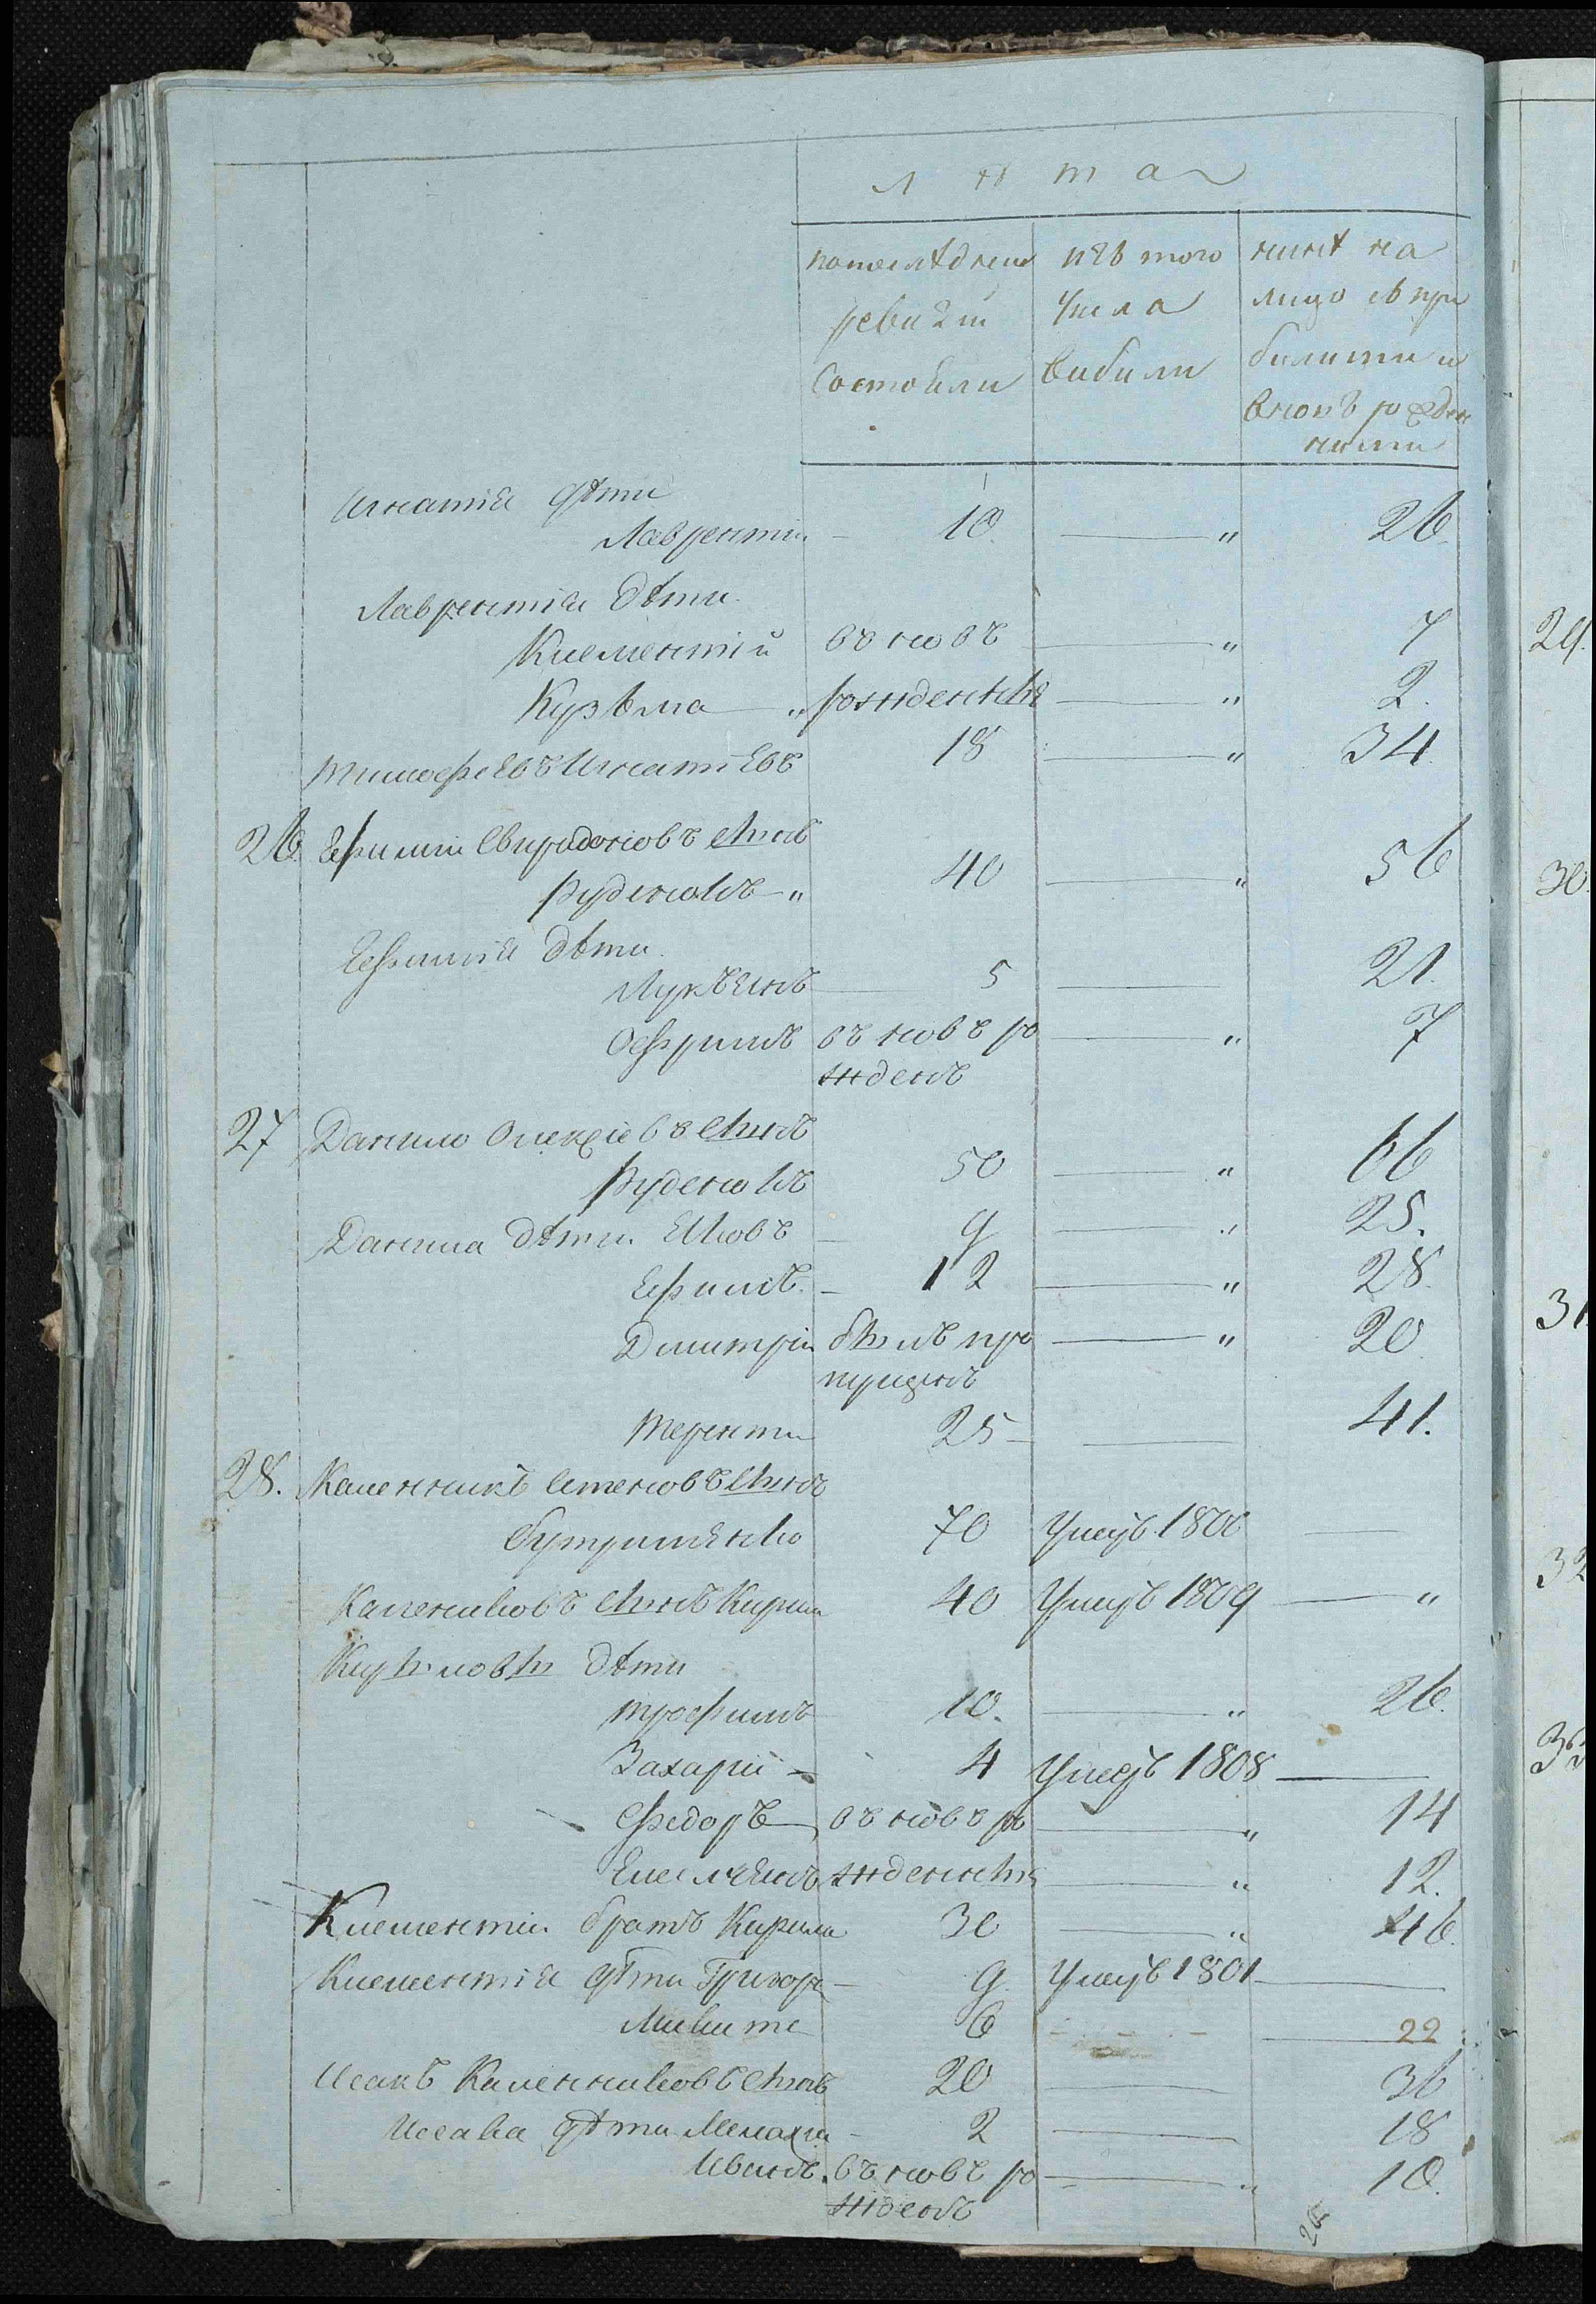 лѣта
попослѣднеи
ревизіи
состояли
изъ того
числа
вибили
нинѣ на
лицо съ при
билими и
вновь рожден
ними
Игнатія дѣти
Лаврентіи 10. " 26.
Лаврентія дѣти
Клементій въ новъ " 7
Кузьма " рожденные " 2.
Тимофеевъ Игнатіевъ 18 " 34.
26. Ефимій Свиридоновъ сынъ
Руденокъ " 40 " 56
Ефимія дѣти
Лукъянъ 5 21.
Офримъ въ новъ ро " 7
жденъ
27 Данило Олексіевъ сынъ
Руденокъ 50 " 66
Данила дѣти Яковъ 9 " 25.
Ефимъ. 12 " 28.
Дмитріи былъ про " 20
пущенъ
Терентіи 25 41.
28. Каленникъ Степовъ сынъ
Бутримянко 70 Умеръ 1800
Калениковъ сынъ Кирила 40 Умеръ 1809 "
Кириловы дѣти
Трофимъ 10. " 26.
Захаріи 4 Умеръ 1808
Федоръ въ новъ ро " 14
Емелянъ жденные " 12.
Клементіи братъ Кирила 30 " 46.
Клементія дѣти Григорі 9. Умеръ 1801
Микита 6 22
Исакъ Каленниковъ сынъ 20 36
Исака дѣти Малахіи 2 18
Иванъ. въ новъ ро " 10.
жденъ
29.
30.
31.
32
33